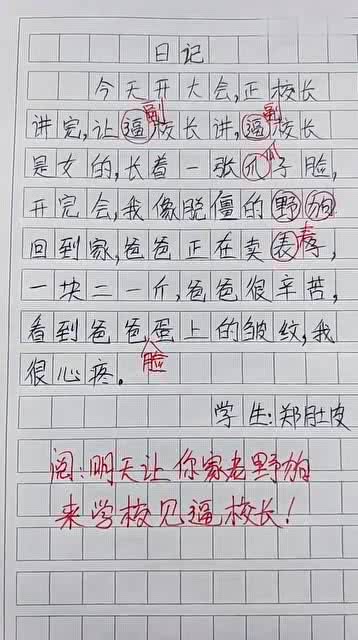 日记
今天开大会,正校长
副 副
讲完,让逼校长讲,逼校长
瓜
是女的,长着一张爪子脸,
开完会,我像脱僵的野狗
回到家,爸爸正在卖表
一块二一斤,爸爸很辛苦,
看到爸爸蛋上的皱纹,我
脸
很心疼。
学生:郑肚皮
阅:明天让你家老野狗
来学校见逼校长!